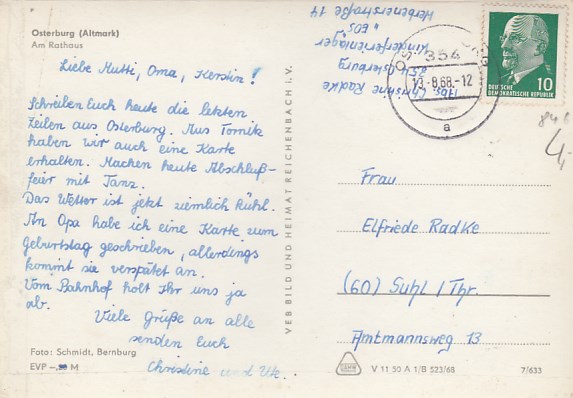 Osterburg (Altmark)
Am Rathaus
Liebe Mutti, Oma, Kerstin!
Schreiben Euch heute die letzten
Zeilen aus Osterburg. Aus Tornik
haben wir auch eine Karte
erhalten. Machen heute Abschluß-
feier mit Tanz.
Das Wetter ist jetzt ziemlich kühl.
An Opa habe ich eine Karte zum
Geburtstag geschrieben, allerdings
kommt sie verspätet an.
Vom Bahnhof holt Ihr uns ja
ab.
Viele Grüße an alle
senden Euch
Christine und Utz.
Foto: Schmidt, Bernburg
EVP -,20 M
VEB BILD UND HEIMAT REICHENBACH i. V.
Abs. Christine Radke
354 Osterburg
Kinderferienlager
"EOS"
Werbenerstraße 14
354
13.-8.68.-12
a
10
DEUTSCHE
DEMOKRATISCHE REPUBLIK
4,-
Frau
Elfriede Radke
(60) Suhl / Thr.
Amtmannsweg 13
V 11 50 A 1/B 523/68
7/633